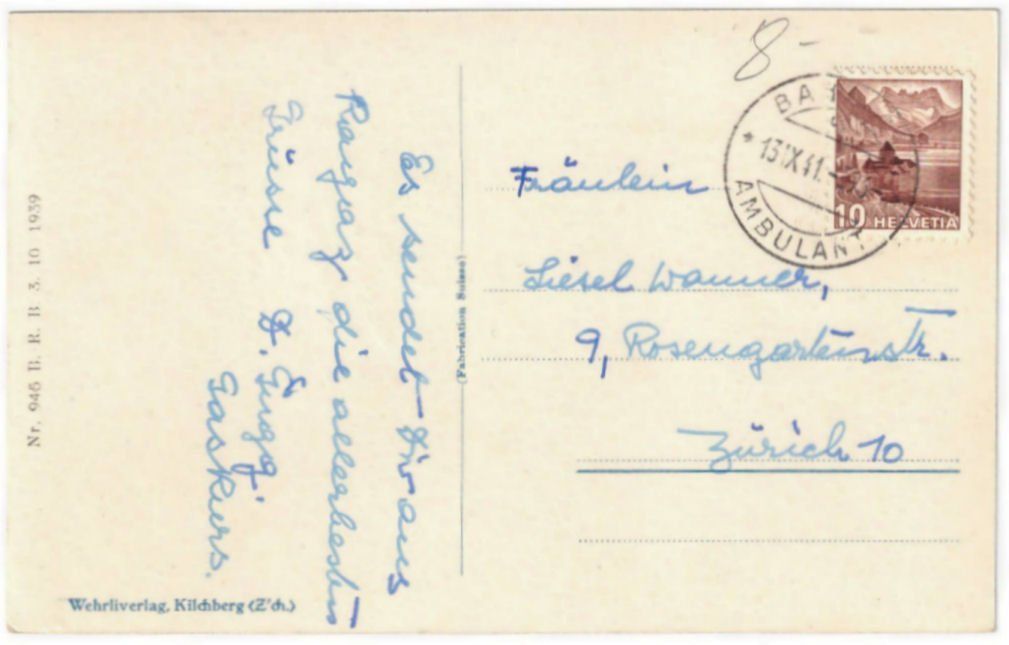 Es sendet Dir aus
Ragaz die allerbesten
Grüsse
Gaskurs.
Fräulein
Liesel Wanner,
9, Rosengartenstr.
Zürich 10
8-
13.IX.41.
AMBULANT
10 HELVETIA
(Fabrication Suisse)
Nr. 946 B. R. B. 3. 10 1939
Wehrliverlag, Kilchberg (Z'ch.)